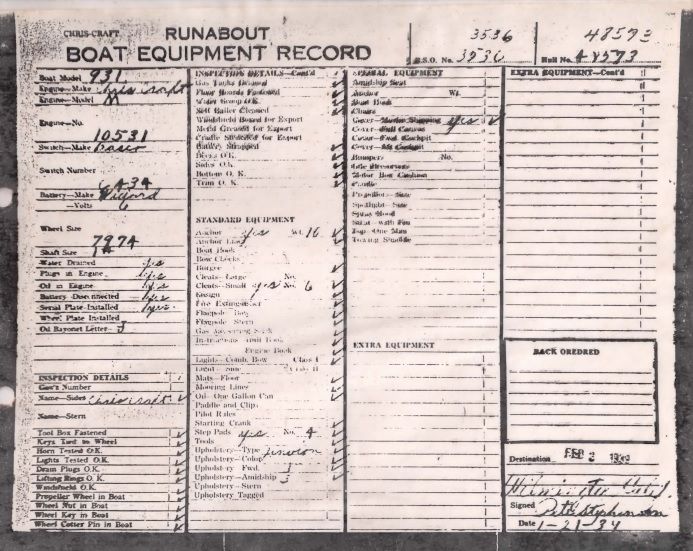 CHRIS-CRAFT
RUNABOUT
BOAT EQUIPMENT RECORD
3536
B.S.O. No. 3536
48573
Hull No. 48573
Boat Model 931
Engine—Make Chris Craft
Engine—Model M
Engine—No.
10531
Switch—Make
Switch Number
6A-34
Battery—Make Willard
—Volts 6
Wheel Size
7974
Shaft Size 1
Water Drained yes
Plugs in Engine yes
Oil in Engine yes
Battery Disconnected yes
Serial Plate Installed yes
Wheel Plate Installed
Oil Bayonet Letter J
INSPECTION DETAILS
Gov't Number
Name—Sides Chris Craft
Name—Stern
Tool Box Fastened
Keys Tied to Wheel
Horn Tested O.K.
Lights Tested O.K.
Drain Plugs O.K.
Lifting Rings O.K.
Windshield O.K.
Propeller Wheel in Boat
Wheel Nut in Boat
Wheel Key in Boat
Wheel Cotter Pin in Boat
INSPECTION DETAILS—Cont'd
Gas Tanks Drained
Floor Boards Fastened
Water Scoop O.K.
Self Bailer Cleaned
Windshield Boxed for Export
Metal Greased for Export
Cradle Stenciled for Export
Battery Strapped
Decks O.K.
Sides O.K.
Bottom O. K.
Trim O. K.
STANDARD EQUIPMENT
Anchor yes Wt. 16
Anchor Line
Boat Hook
Bow Chocks
Burgee
Cleats—Large No.
Cleats—Small yes No. 6
Ensign
Fire Extinguisher
Flagpole Bow
Flagpole Stern
Gas Measuring Stick
Instructions Boat Book
Engine Book
Lights—Comb. Bow Class I
Mats—Floor
Mooring Lines
Oil—One Gallon Can
Paddle and Clips
Pilot Rules
Starting Crank
Step Pads yes No. 4
Tools
Upholstery—Type
Upholstery—Color
Upholstery—Fwd. 1
Upholstery—Amidship 3
Upholstery—Stern
Upholstery Tagged
SPECIAL EQUIPMENT
Amidship Seat
Anchor Wt.
Boat Hook
Chairs
Cover—Mooring yes
Cover—Full Canvas
Cover—Fwd Cockpit
Cover—Aft Cockpit
Bumpers No.
Life Preservers
Motor Box Cushion
Paddle
Propellers—Size
Spotlight—Size
Spray Hood
Top—One Man
Towing Shackle
EXTRA EQUIPMENT
EXTRA EQUIPMENT—Cont'd
BACK OREDRED
Destination FEB 2
Wilmington Calif.
Signed Pete Stephenson
Date 1-21-34